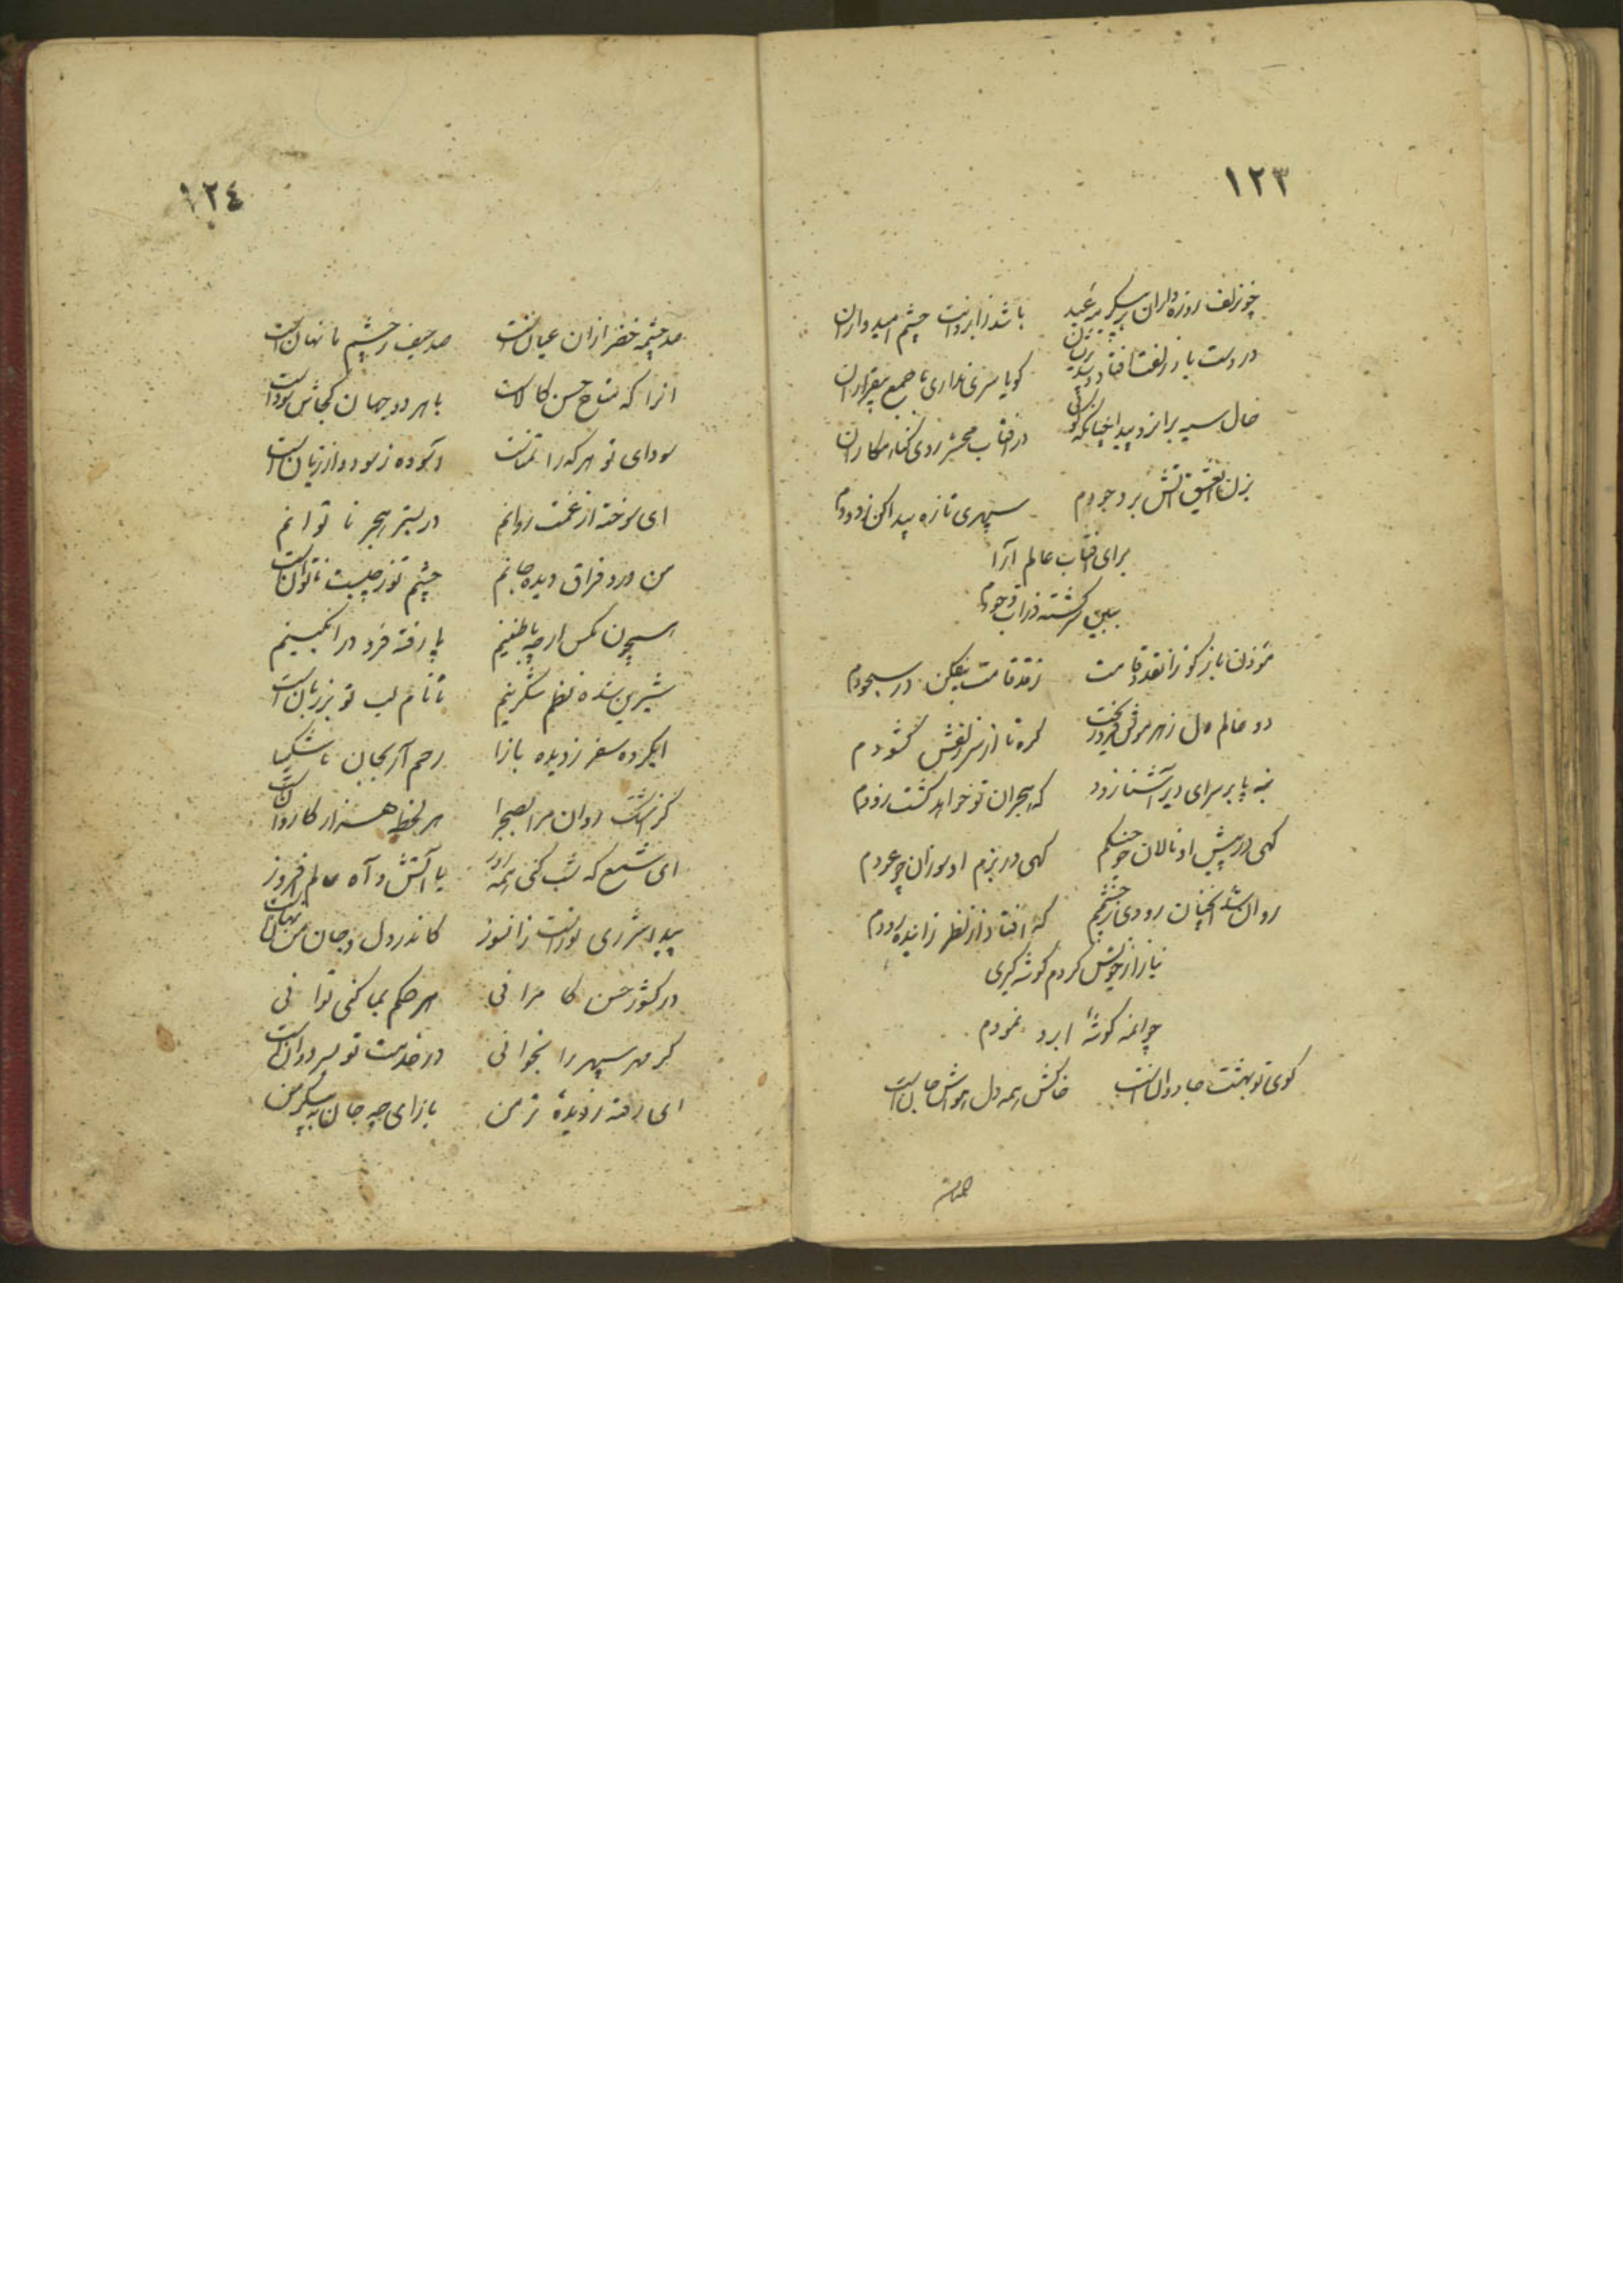 ١٢٣
چو زلف روزه داران بهر عید باشد ز ابروانت چشم امیدواران
در دست باد زلفت افتاد و شد پریشان گویا سری نداری با جمع بیقراران
خال سیه بر ابرو پیدا چنانکه گوئی در آفتاب محشر روی گناه کاران
بزن از عشق آتش بر وجودم سپهری تازه پیدا کن ز دودم
برای آفتاب عالم آرا
ببین سرگشته ذرات وجودم
مؤذن باز گو زانقد و قامت ز قد قامت بیفکن در سجودم
دو عالم دل ز هر مویش فرو ریخت گره تا از سر زلفش گشودم
بنه پا بر سرای دیر آشنا زود که هجران تو خواهد کشت زودم
گهی در پیش او نالان چو چنگم گهی در بزم او سوزان چو عودم
روان شد آنچنان رودی ز چشمم که افتاد از نظر زاینده رودم
نیاز از خویش کردم گوشه گیری
چو آنمه گوشه ابرو نمودم
کوی تو بهشت جاودانست خاکش همه دل هواش جانست
صد چشمه
١٢٤
صد چشمه خضر ازان عیانست صد حیف ز چشم ما نهانست
آنرا که متاع حسن کالاست با هر دو جهان کجاش سوداست
سودای تو هر که را تمناست آسوده ز سود و از زیانست
ای سوخته از غمت روانم در بستر هجر ناتوانم
من درد فراق دیده جانم چشم تو ز چیست ناتوانست
همچون مگس ار چه با طنینم پا رفته فرو در انگبینم
شیرین شده نظم شکرینم تا نام لب تو بر زبانست
ایکرده سفر ز دیده بازا رحم آر بجان ناشکیبا
کز اشک روان مرا بصحرا هر لحظه هزار کاروانست
ای شمع که شب کنی همه روز با آتش و آه عالم افروز
پیدا شرری تو راست زانسوز کاندر دل و جان من نهانست
در کشور حسن کامرانی هر حکم بما کنی توانی
گر مهر سپهر را بخوانی در خدمت تو بسر دوانست
ای رفته ز دیده تر من بازای چو جان به پیکر من